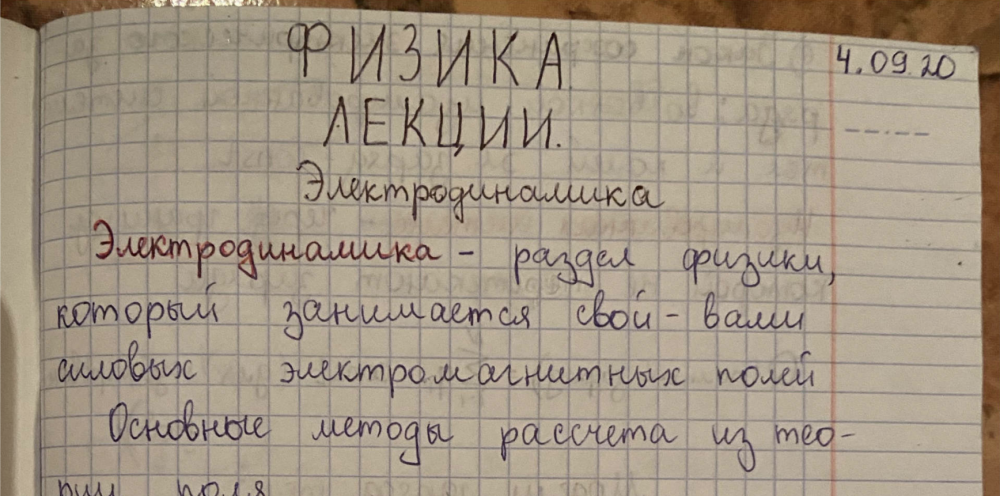 ФИЗИКА
4.09.20
ЛЕКЦИИ.
Электродинамика
Электродинамика - раздел физики,
который занимается свой-вами
силовых электромагнитных полей
Основные методы рассчета из тео-
рии поля